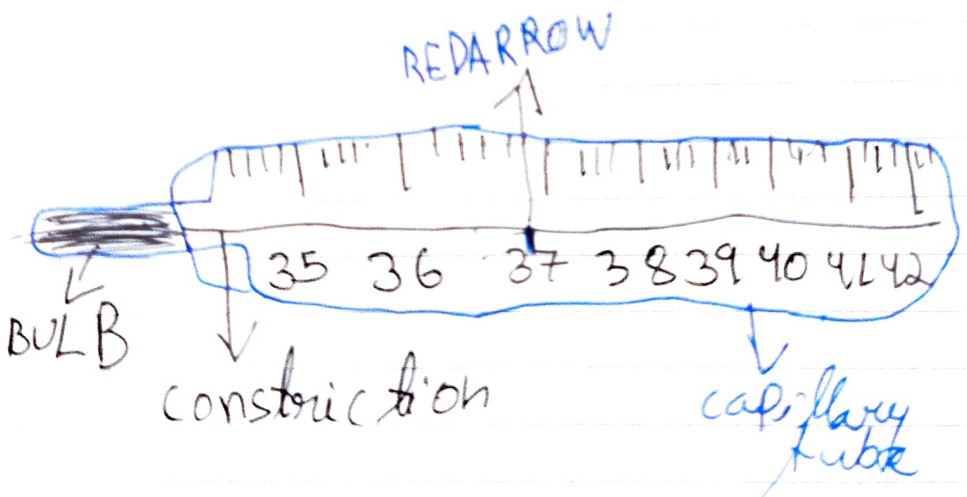 REDARROW
35 36 37 38 39 40 41 42
BULB
constriction
capillary
tube